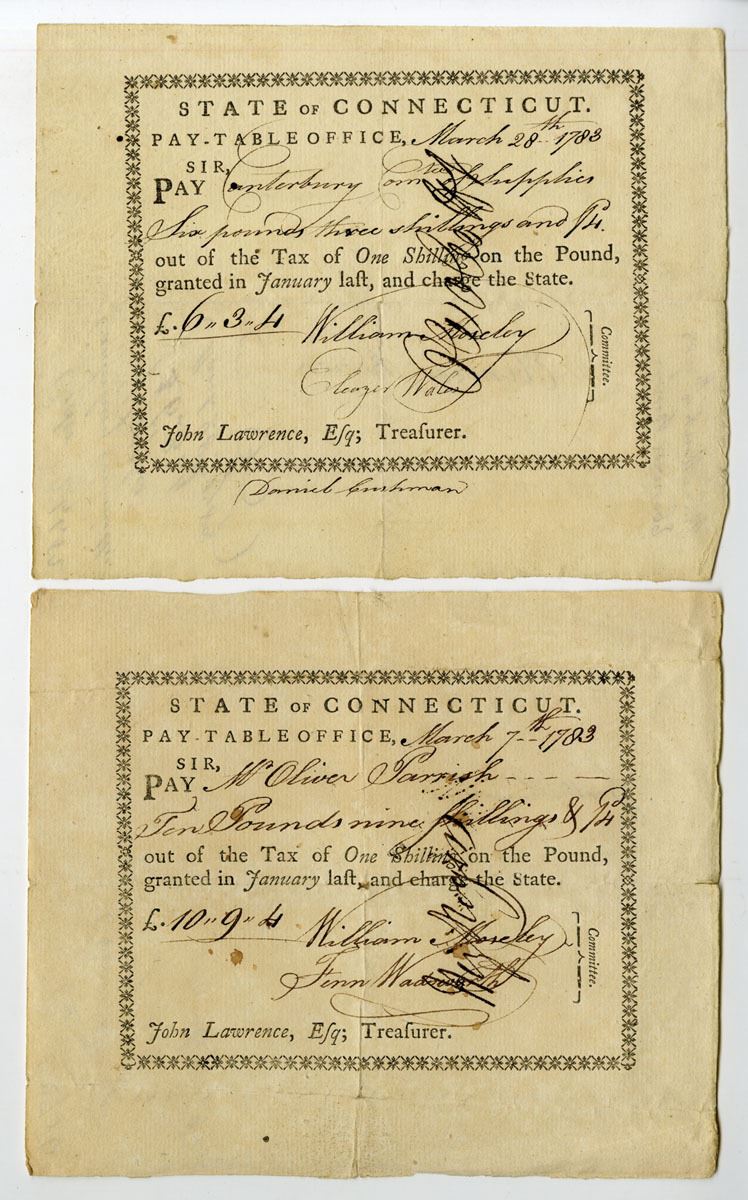 STATE OF CONNECTICUT.
PAY-TABLE OFFICE, March 28th 1783
SIR,
PAY Canterbury Comtee of Supplies
Six pounds three shillings and /4.
out of the Tax of One Shilling on the Pound,
granted in January laſt, and charge the State.
£. 6 " 3 " 4 William Moseley
Eleazer Wales
Committee.
John Lawrence, Eſq; Treaſurer.
Daniel Cushman
STATE OF CONNECTICUT.
PAY-TABLE OFFICE, March 7th 1783
SIR,
PAY Mr Oliver Parrish
Ten Pounds nine shillings & /4
out of the Tax of One Shilling on the Pound,
granted in January laſt, and charge the State.
£. 10 " 9 " 4 William Moseley
Fenn Wadsworth
Committee.
John Lawrence, Eſq; Treaſurer.